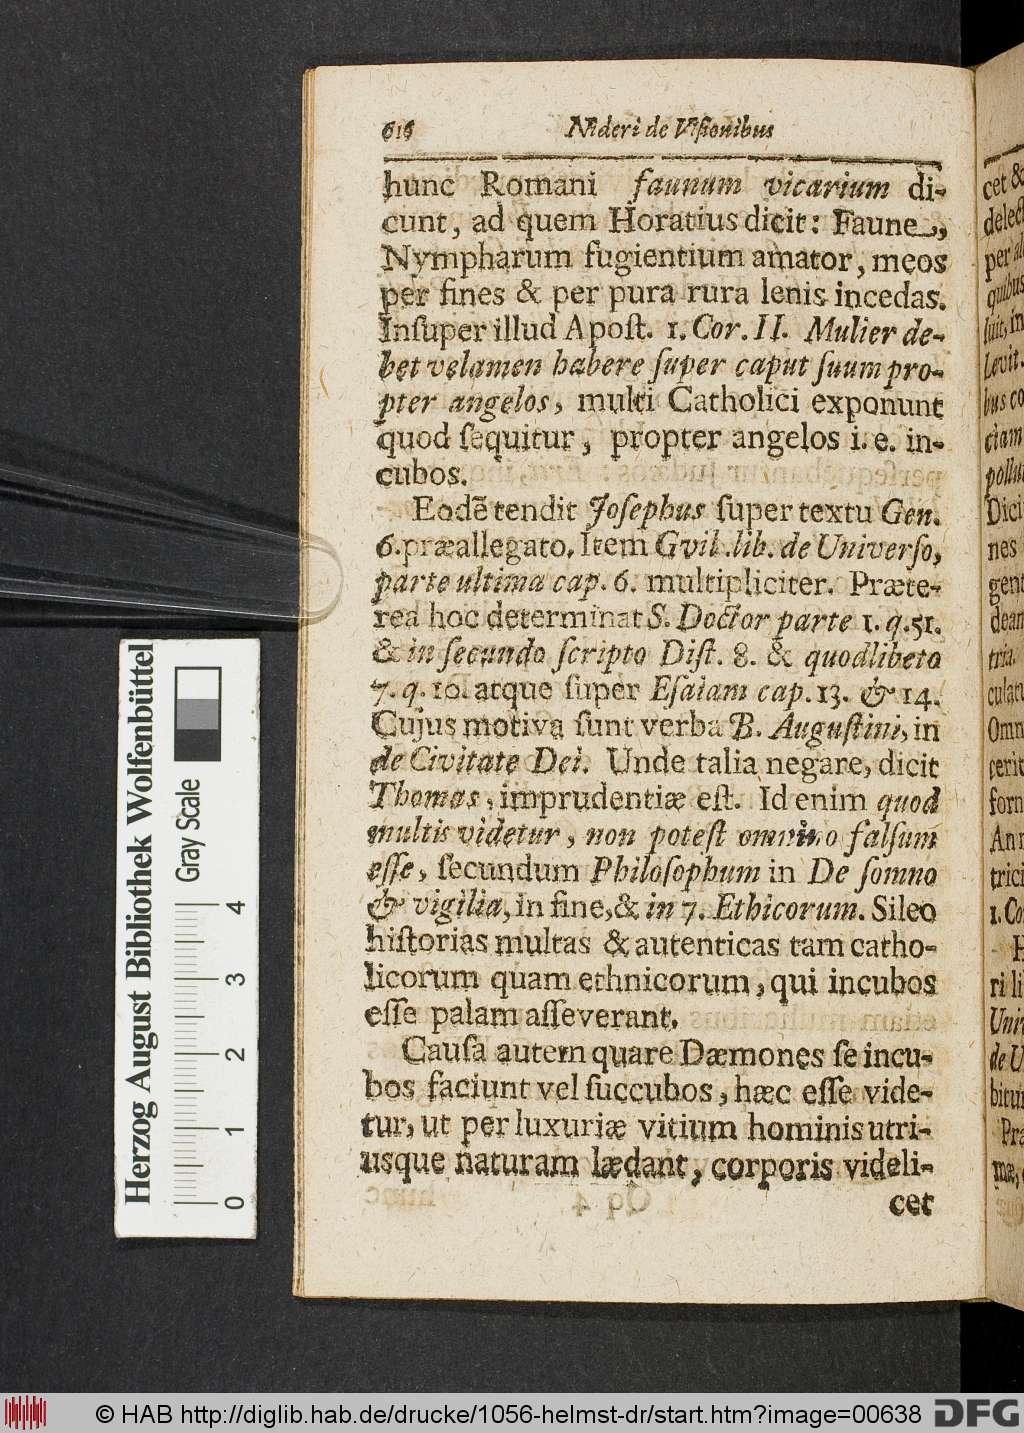 616 Nideri de Viſionibus
hunc Romani faunum vicarium di-
cunt, ad quem Horatius dicit: Faune,
Nympharum fugientium amator, meos
per fines & per pura rura lenis incedas.
Inſuper illud Apoſt. 1. Cor. II. Mulier de-
bet velamen habere ſuper caput ſuum pro-
pter angelos, multi Catholici exponunt
quod ſequitur, propter angelos i. e. in-
cubos.
Eodẽ tendit Joſephus ſuper textu Gen.
6. præallegato. Item Gvil. lib. de Univerſo,
parte ultima cap. 6. multipliciter. Præte-
rea hoc determinat S. Doctor parte 1. q. 51.
& in ſecundo ſcripto Diſt. 8. & quodlibeto
7. q. 10. atque ſuper Eſaiam cap. 13. & 14.
Cujus motiva ſunt verba B. Auguſtini, in
de Civitate Dei. Unde talia negare, dicit
Thomas, imprudentiæ eſt. Id enim quod
multis videtur, non poteſt omnino falſum
eſſe, ſecundum Philoſophum in De ſomno
& vigilia, in fine, & in 7. Ethicorum. Sileo
hiſtorias multas & autenticas tam catho-
licorum quam ethnicorum, qui incubos
eſſe palam aſſeverant.
Cauſa autem quare Dæmones ſe incu-
bos faciunt vel ſuccubos, hæc eſſe vide-
tur, ut per luxuriæ vitium hominis utri-
usque naturam lædant, corporis videli-
cet
cet &
per
quibus
luit, in
Levit.
bus co
ciam
pollu
Dici
nes
gent
dean
tria.
culat
Omn
cerit
forn
Ann
trici
1. Co
H
ri li
Uni
de U
bitu
Pra
mæ,
Herzog August Bibliothek Wolfenbüttel
Gray Scale
0 1 2 3 4
© HAB http://diglib.hab.de/drucke/1056-helmst-dr/start.htm?image=00638
DFG